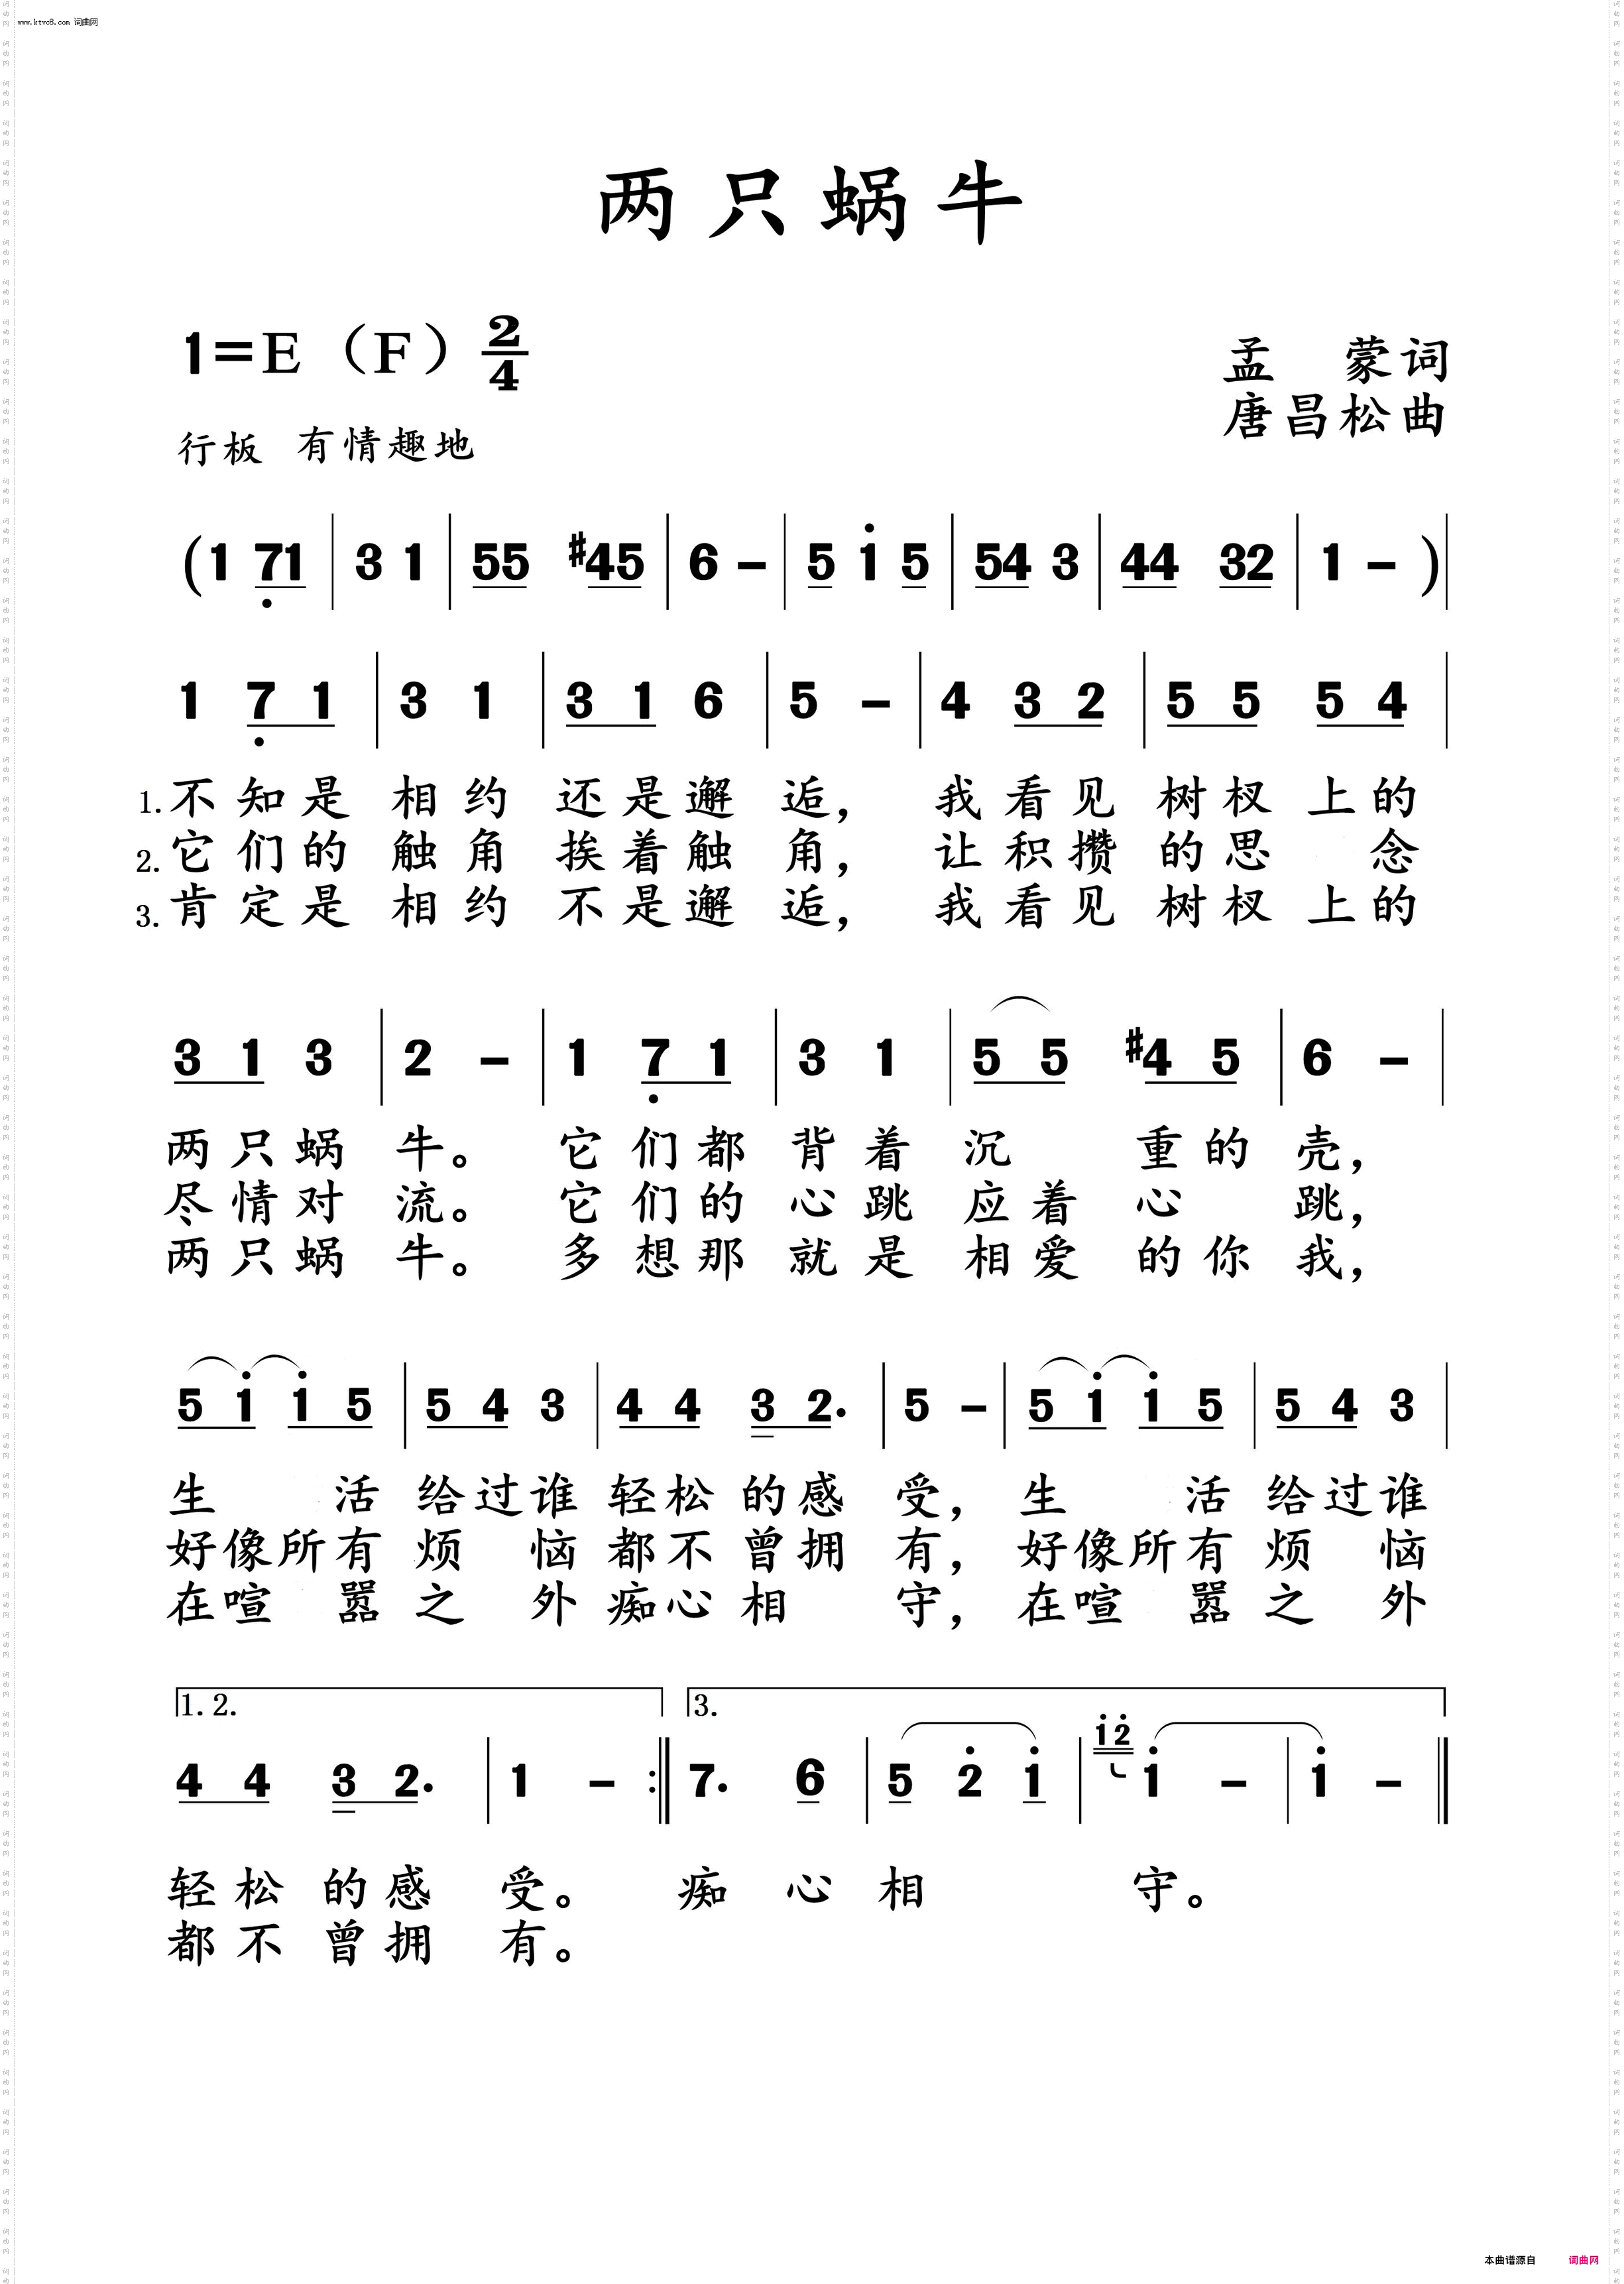 www.ktvc8.com 词曲网
两只蜗牛
1=E（F）2/4
孟 蒙词
唐昌松曲
行板 有情趣地
(1 71 | 3 1 | 55 #45 | 6 - | 5 i 5 | 54 3 | 44 32 | 1 - )|
1 7 1 | 3 1 | 3 1 6 | 5 - | 4 3 2 | 5 5 5 4 |
1.不知是相约还是邂逅，我看见树杈上的
2.它们的触角挨着触角，让积攒的思念
3.肯定是相约不是邂逅，我看见树杈上的
3 1 3 | 2 - | 1 7 1 | 3 1 | 5 5 #4 5 | 6 - |
两只蜗牛。它们都背着沉重的壳，
尽情对流。它们的心跳应着心跳，
两只蜗牛。多想那就是相爱的你我，
5 i i 5 | 5 4 3 | 4 4 3 2. | 5 - | 5 i i 5 | 5 4 3 |
生活给过谁轻松的感受，生活给过谁
好像所有烦恼都不曾拥有，好像所有烦恼
在喧嚣之外痴心相守，在喧嚣之外
1.2. 3.
4 4 3 2. | 1 - :‖ 7. 6 | 5 2 i | i2 i - | i - ‖
轻松的感受。痴心相守。
都不曾拥有。
本曲谱源自 词曲网